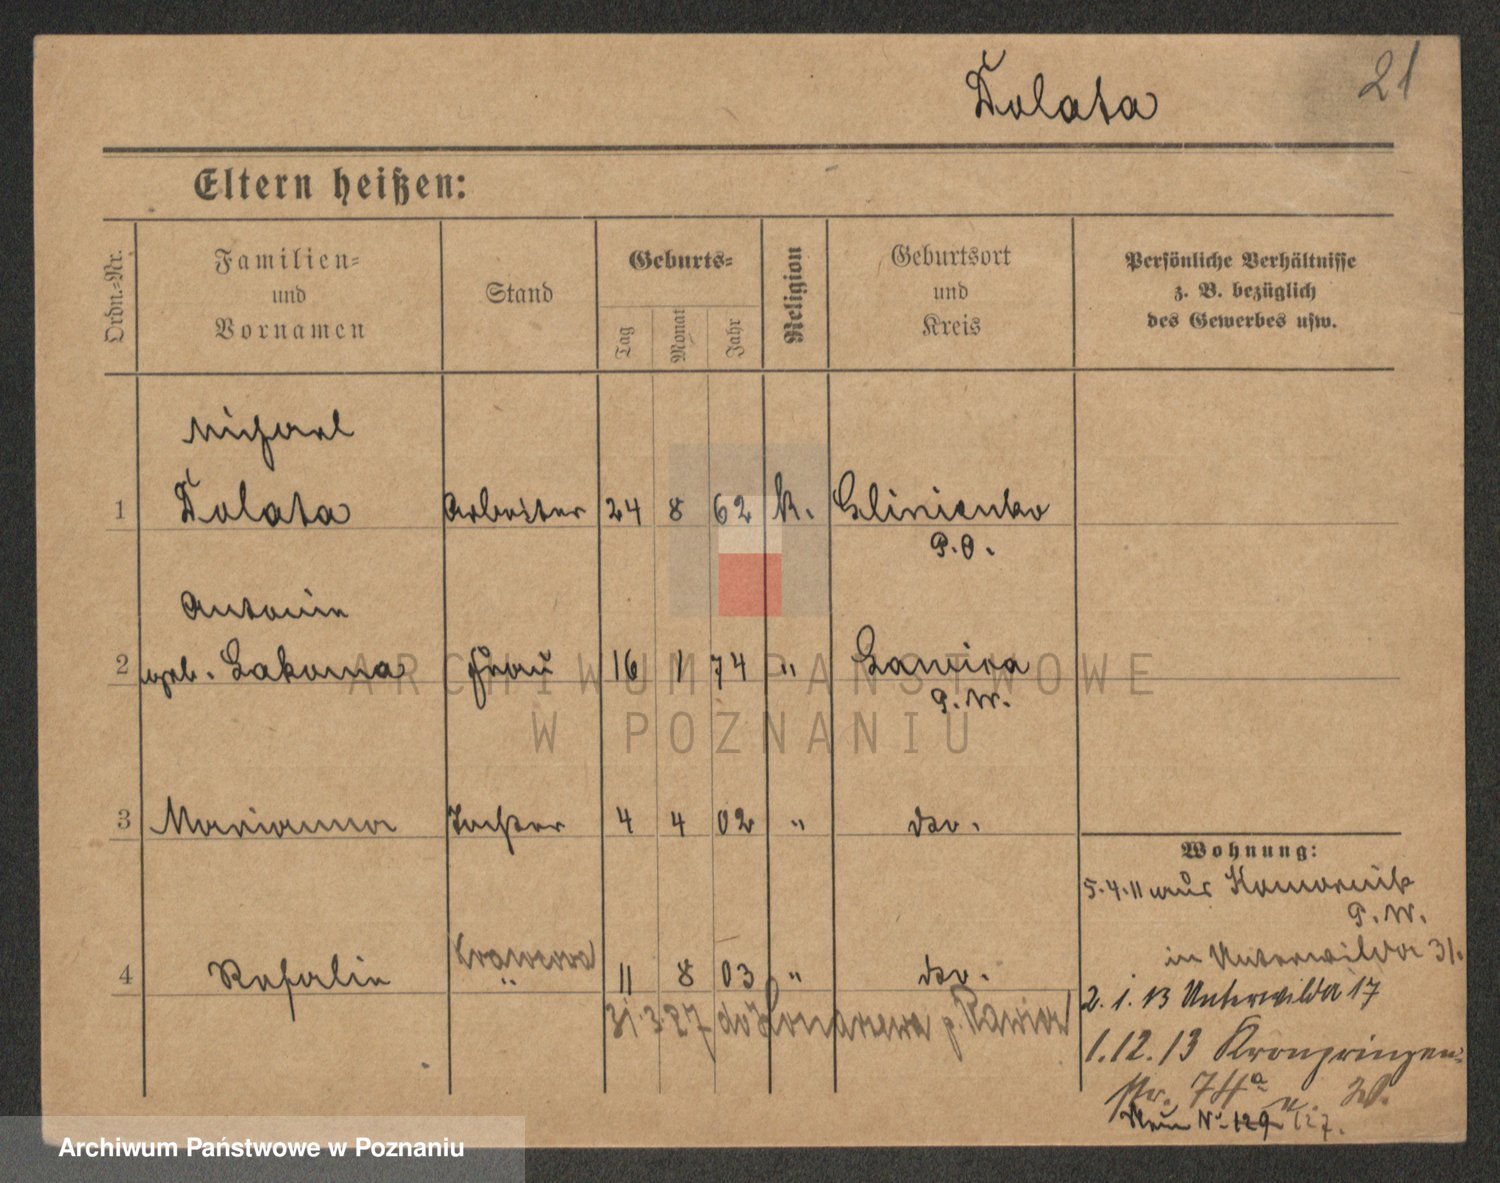 Dolata
21
Eltern heißen:
Ordn.-Nr.
Familien-
und
Vornamen
Stand
Geburts-
Tag
Monat
Jahr
Religion
Geburtsort
und
Kreis
Persönliche Verhältnisse
z. B. bezüglich
des Gewerbes usw.
Michael
1 Dolata Arbeiter 24 8 62 k. Glinienko
P.O.
Antonie
2 geb. Lakoma Frau 16 1 74 " Lawica
P.W.
3 Marianna Tochter 4 4 02 " dto.
Wohnung:
5.4.11 aus Komornik
P.W.
Krawcowa
4 Rofalie " 11 8 03 " dto.
in Unterwilda 31.
31.3.27 do p. Rawicz
2.1.13 Unterwilda 17
1.12.13 Kronprinzen-
str. 74a
Neu Nr. 129 127.
ARCHIWUM PAŃSTWOWE
W POZNANIU
Archiwum Państwowe w Poznaniu